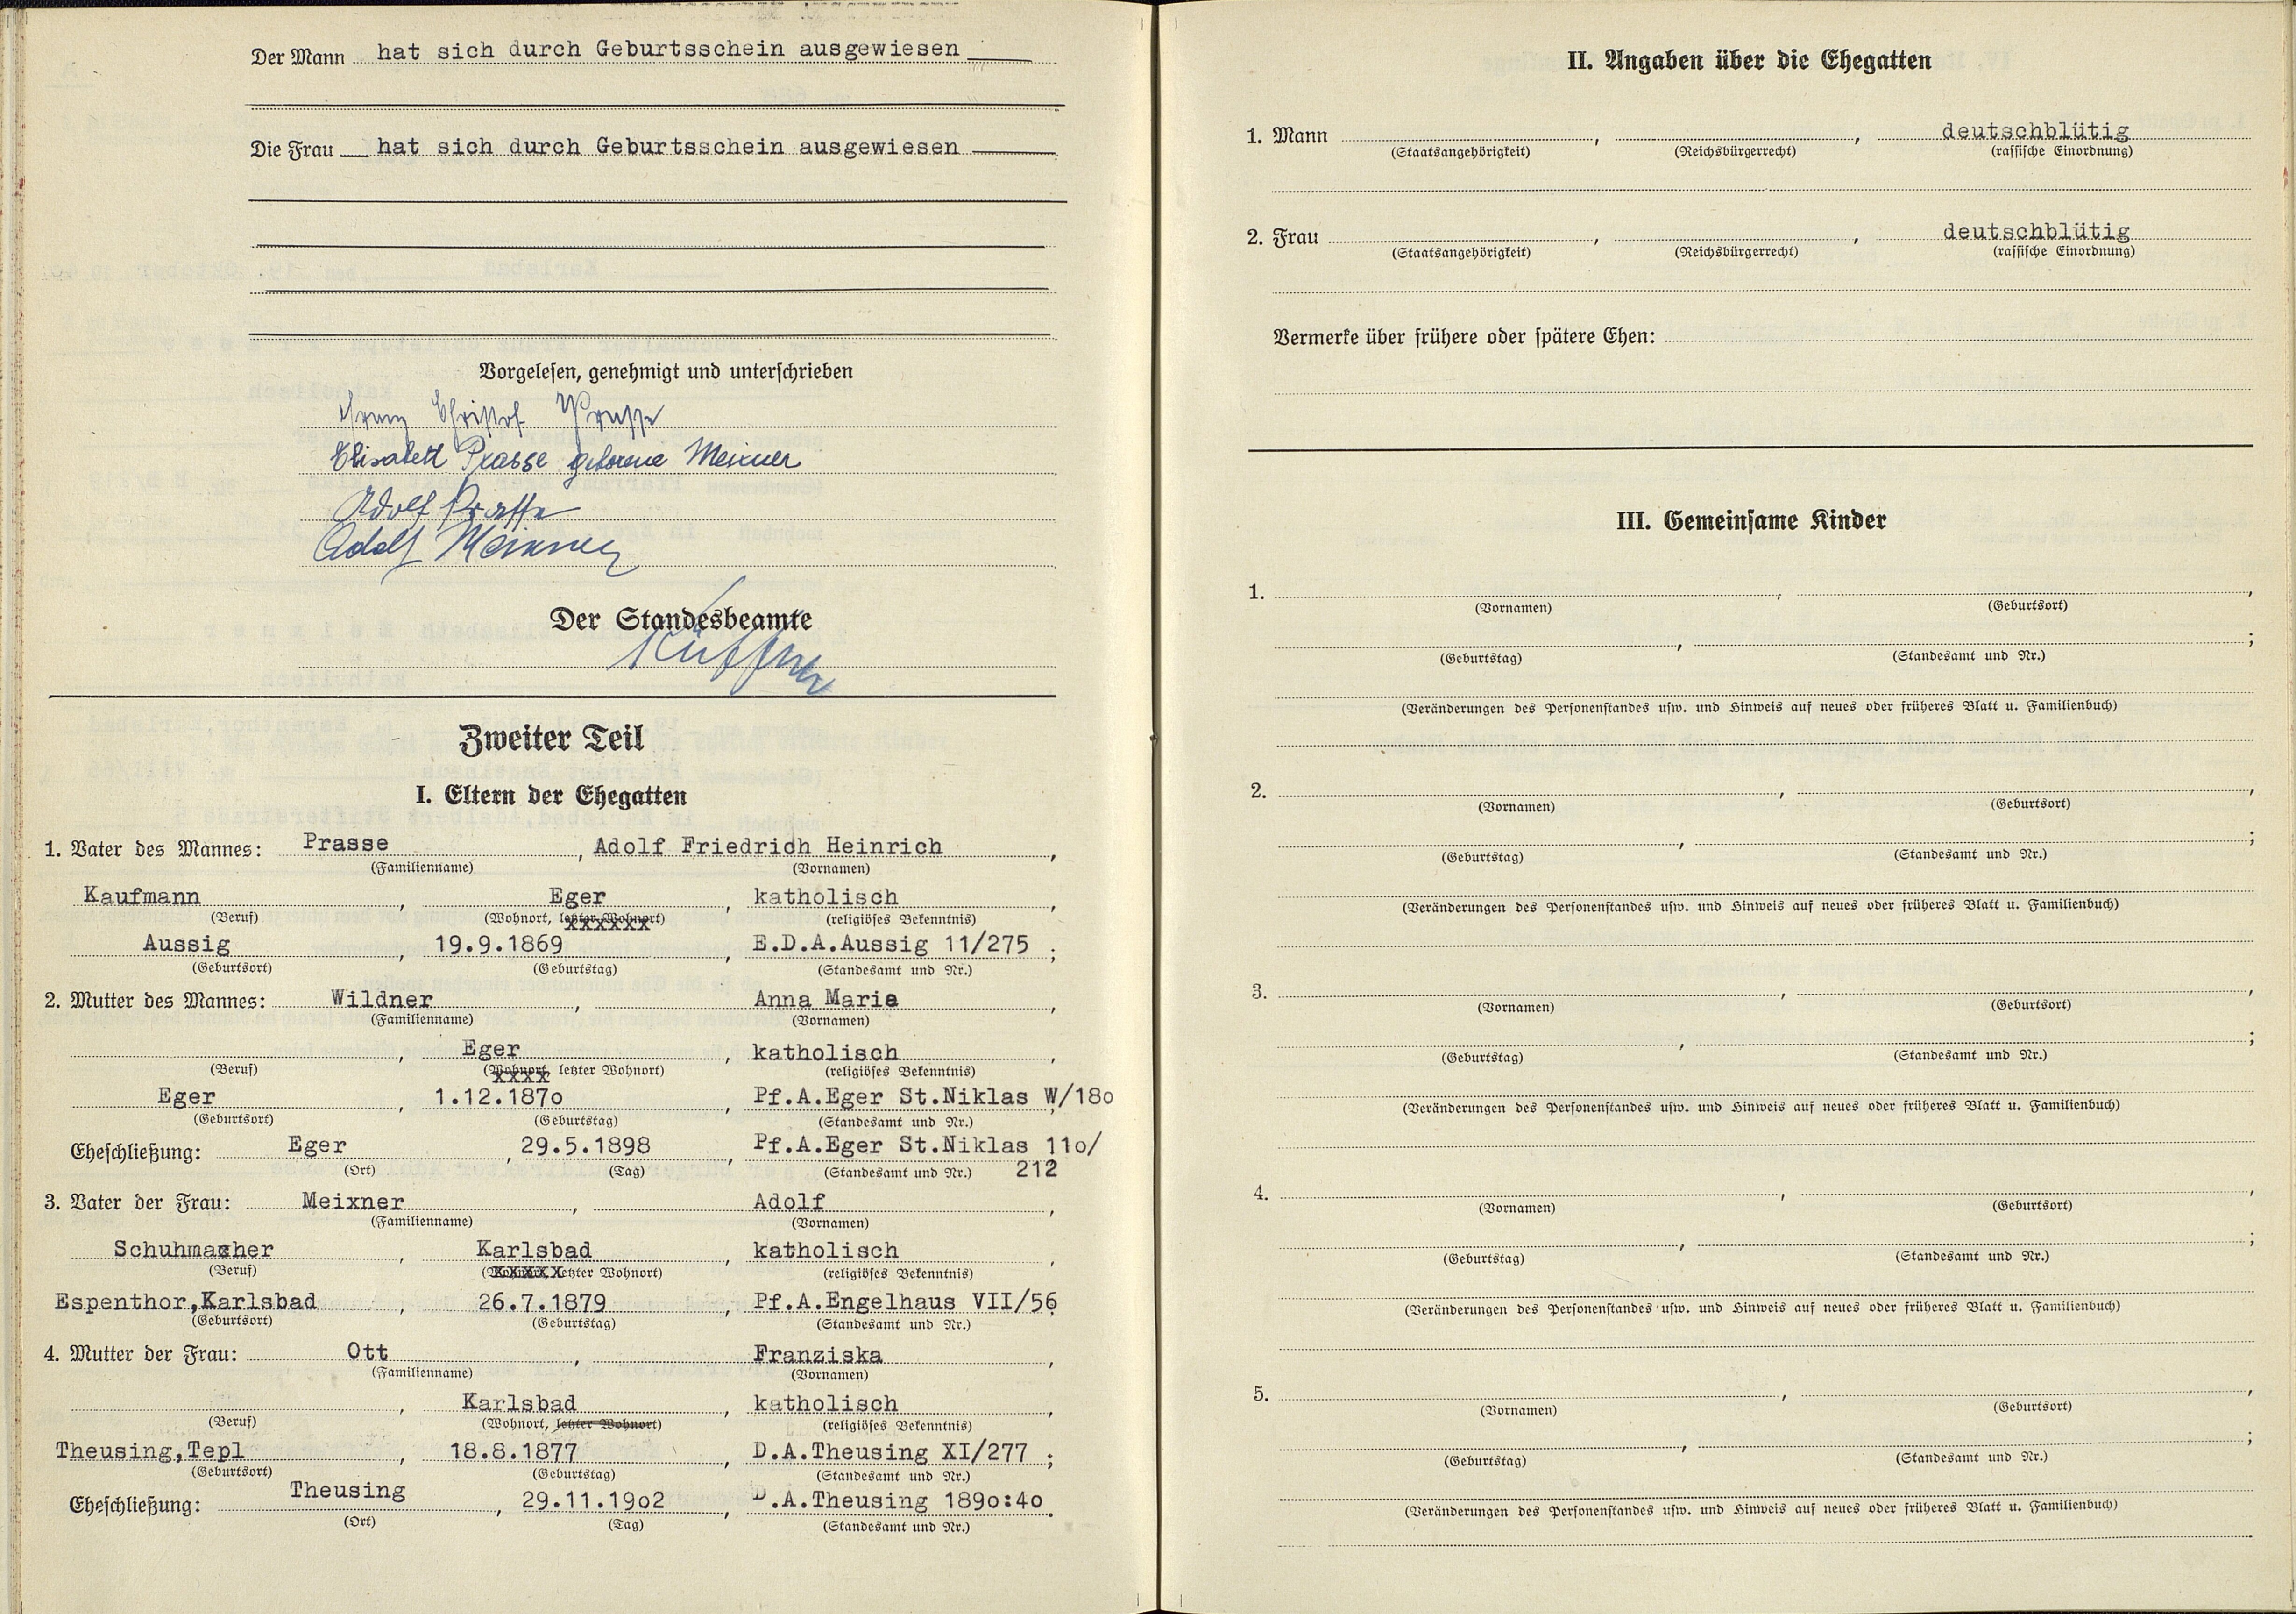 Der Mann hat sich durch Geburtsschein ausgewiesen
Die Frau hat sich durch Geburtsschein ausgewiesen
Vorgelesen, genehmigt und unterschrieben
Franz Christof Prasse
Elisabett Prasse geborene Meixner
Adolf Prasse
Adolf Meixner
Der Standesbeamte
Küffner
Zweiter Teil
I. Eltern der Ehegatten
1. Vater des Mannes: Prasse, Adolf Friedrich Heinrich,
(Familienname) (Vornamen)
Kaufmann, Eger, katholisch,
(Beruf) (Wohnort, letzter Wohnort) (religiöses Bekenntnis)
xxxxxx
Aussig, 19.9.1869, E.D.A.Aussig 11/275;
(Geburtsort) (Geburtstag) (Standesamt und Nr.)
2. Mutter des Mannes: Wildner, Anna Maria,
(Familienname) (Vornamen)
, Eger, katholisch,
(Beruf) (Wohnort, letzter Wohnort) (religiöses Bekenntnis)
xxxx
Eger, 1.12.187o, Pf.A.Eger St.Niklas W/18o;
(Geburtsort) (Geburtstag) (Standesamt und Nr.)
Eheschließung: Eger, 29.5.1898, Pf.A.Eger St.Niklas 11o/
(Ort) (Tag) (Standesamt und Nr.) 212
3. Vater der Frau: Meixner, Adolf,
(Familienname) (Vornamen)
Schuhmacher, Karlsbad, katholisch,
(Beruf) (Wohnort, letzter Wohnort) (religiöses Bekenntnis)
Espenthor,Karlsbad, 26.7.1879, Pf.A.Engelhaus VII/56;
(Geburtsort) (Geburtstag) (Standesamt und Nr.)
4. Mutter der Frau: Ott, Franziska,
(Familienname) (Vornamen)
, Karlsbad, katholisch,
(Beruf) (Wohnort, letzter Wohnort) (religiöses Bekenntnis)
Theusing,Tepl, 18.8.1877, D.A.Theusing XI/277;
(Geburtsort) (Geburtstag) (Standesamt und Nr.)
Eheschließung: Theusing, 29.11.19o2, D.A.Theusing 189o:4o.
(Ort) (Tag) (Standesamt und Nr.)
II. Angaben über die Ehegatten
1. Mann , , deutschblütig
(Staatsangehörigkeit) (Reichsbürgerrecht) (rassische Einordnung)
2. Frau , , deutschblütig
(Staatsangehörigkeit) (Reichsbürgerrecht) (rassische Einordnung)
Vermerke über frühere oder spätere Ehen:
III. Gemeinsame Kinder
1. , ,
(Vornamen) (Geburtsort)
, ;
(Geburtstag) (Standesamt und Nr.)
(Veränderungen des Personenstandes usw. und Hinweis auf neues oder früheres Blatt u. Familienbuch)
2. , ,
(Vornamen) (Geburtsort)
, ;
(Geburtstag) (Standesamt und Nr.)
(Veränderungen des Personenstandes usw. und Hinweis auf neues oder früheres Blatt u. Familienbuch)
3. , ,
(Vornamen) (Geburtsort)
, ;
(Geburtstag) (Standesamt und Nr.)
(Veränderungen des Personenstandes usw. und Hinweis auf neues oder früheres Blatt u. Familienbuch)
4. , ,
(Vornamen) (Geburtsort)
, ;
(Geburtstag) (Standesamt und Nr.)
(Veränderungen des Personenstandes usw. und Hinweis auf neues oder früheres Blatt u. Familienbuch)
5. , ,
(Vornamen) (Geburtsort)
, ;
(Geburtstag) (Standesamt und Nr.)
(Veränderungen des Personenstandes usw. und Hinweis auf neues oder früheres Blatt u. Familienbuch)